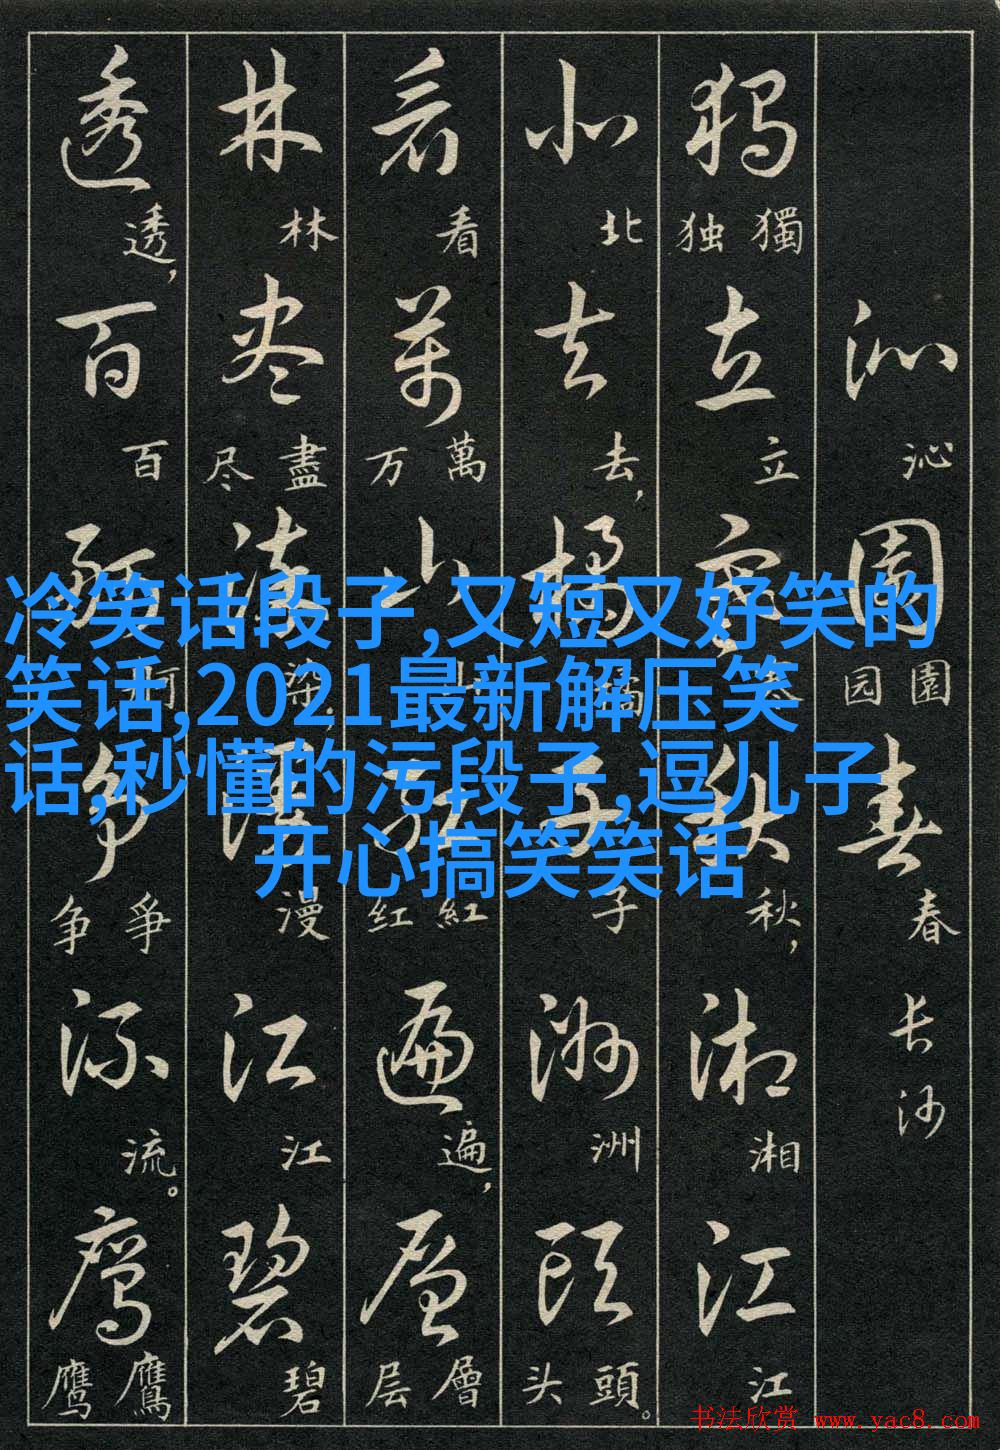 冷笑话段子,又短又好笑的
笑话,2021最新解压笑
话,秒懂的污段子,逗儿子
开心搞笑笑话
沁沁園园園春春长沙
獨独獨立立寒寒秋秋,湘湘江江
北北去去,橘橘子子洲洲頭头頭。
看看萬万萬山山紅红紅遍遍,層层層
林林盡尽盡染染,漫漫江江碧碧
透透,百百舸舸爭争爭流流。鷹鹰鷹
书法欣赏 www.yac8.com